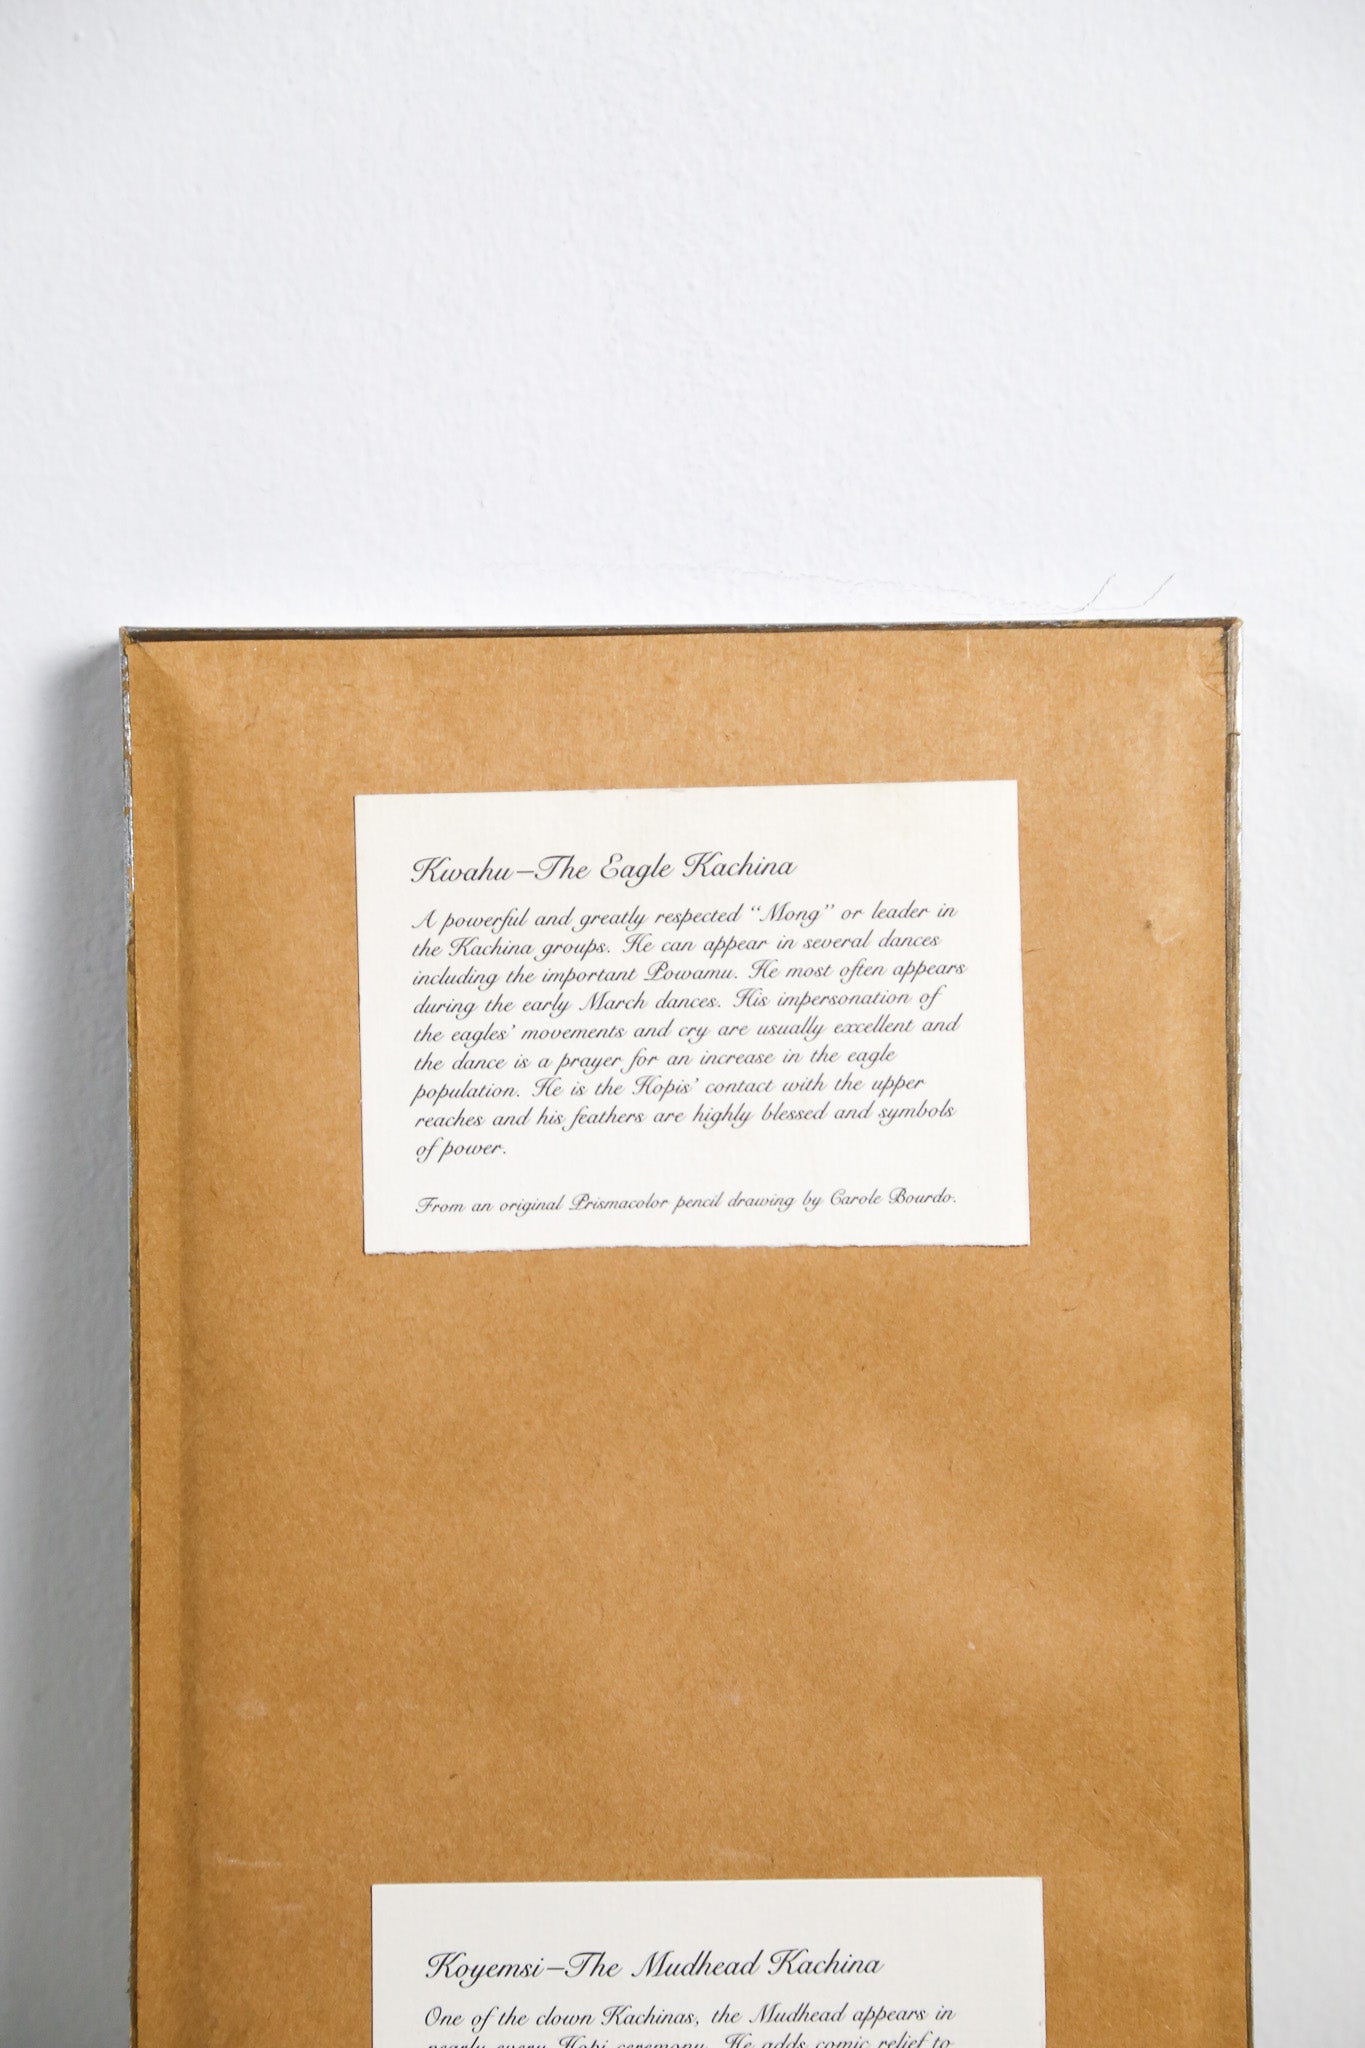 Kwahu—The Eagle Kachina
A powerful and greatly respected “Mong” or leader in
the Kachina groups. He can appear in several dances
including the important Powamu. He most often appears
during the early March dances. His impersonation of
the eagles’ movements and cry are usually excellent and
the dance is a prayer for an increase in the eagle
population. He is the Hopis’ contact with the upper
reaches and his feathers are highly blessed and symbols
of power.
From an original Prismacolor pencil drawing by Carole Bourdo.
Koyemsi—The Mudhead Kachina
One of the clown Kachinas, the Mudhead appears in
nearly every Hopi ceremony. He adds comic relief to